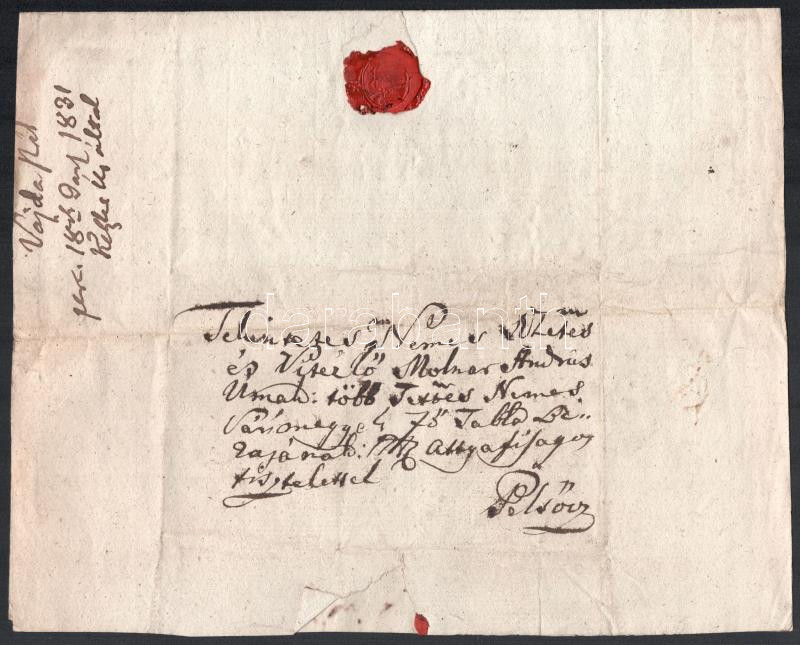 Vajda Pál
perc. 18ik 1831
által
Tekintetes Nemes Nzetes
és Vitézlő Molnar András
Urnak: több Tettes Nemes
Vármegyek Tö Tabla Bi-
rajának: Attyafiságos
tisztelettel
Pelsőcz
darabanth